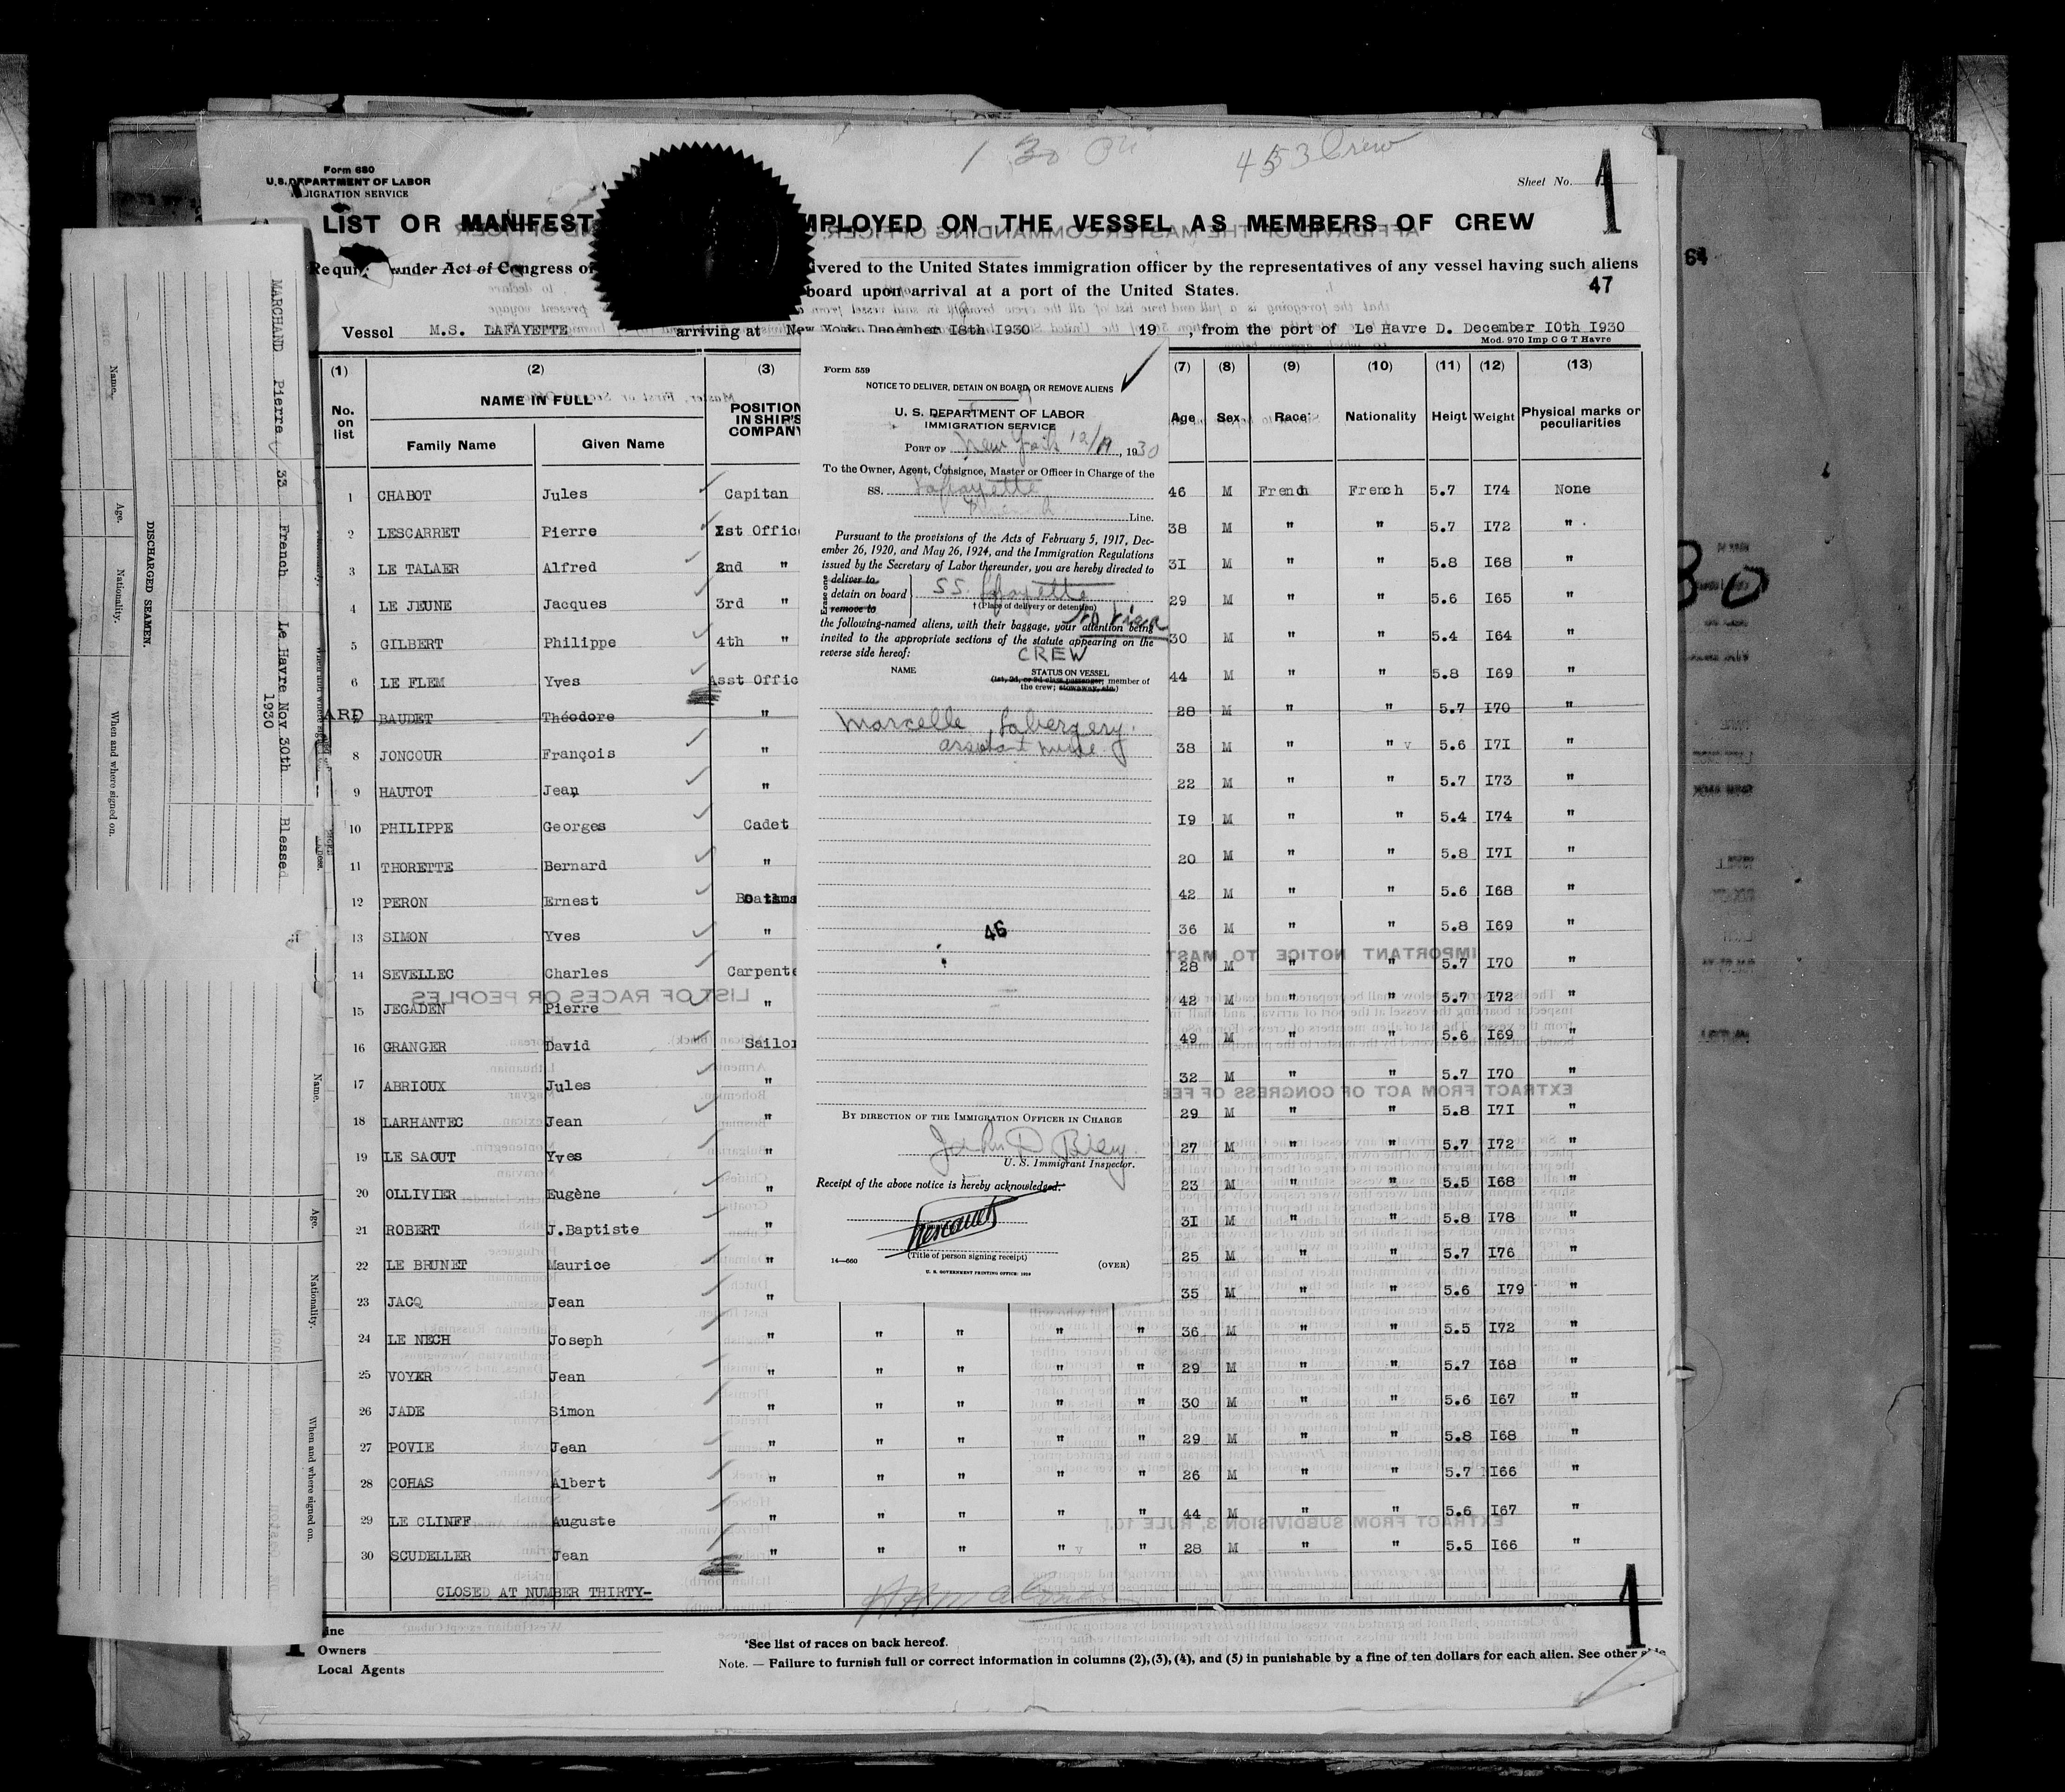 1 30
453 Crew
Form 680
U.S. DEPARTMENT OF LABOR
IMIGRATION SERVICE
Sheet No. 1
LIST OR MANIFEST MPLOYED ON THE VESSEL AS MEMBERS OF CREW
Requi under Act of Congress of vered to the United States immigration officer by the representatives of any vessel having such aliens
board upon arrival at a port of the United States.
47
64
Vessel M.S. LAFAYETTE arriving at New York, December I8th I930 19 , from the port of Le Havre D. December I0th I930
Mod. 970 Imp C G T Havre
(1) (2) (3) (7) (8) (9) (10) (11) (12) (13)
No. on list NAME IN FULL POSITION IN SHIP'S COMPANY Age Sex Race Nationality Heigt Weight Physical marks or peculiarities
Family Name Given Name
1 CHABOT Jules Capitan 46 M French French 5.7 I74 None
2 LESCARRET Pierre Ist Offic 38 M " " 5.7 I72 "
3 LE TALAER Alfred 2nd " 3I M " " 5.8 I68 "
4 LE JEUNE Jacques 3rd " 29 M " " 5.6 I65 "
5 GILBERT Philippe 4th " 30 M " " 5.4 I64 "
6 LE FLEM Yves Asst Offic 44 M " " 5.8 I69 "
ARD BAUDET Théodore " 28 M " " 5.7 I70 "
8 JONCOUR François " 38 M " " 5.6 I7I "
9 HAUTOT Jean " 22 M " " 5.7 I73 "
10 PHILIPPE Georges Cadet I9 M " " 5.4 I74 "
11 THORETTE Bernard " 20 M " " 5.8 I7I "
12 PERON Ernest 42 M " " 5.6 I68 "
13 SIMON Yves " 36 M " " 5.8 I69 "
14 SEVELLEC Charles Carpente 28 M " " 5.7 I70 "
15 JEGADEN Pierre " 42 M " " 5.7 I72 "
16 GRANGER David Sailor 49 M " " 5.6 I69 "
17 ABRIOUX Jules " 32 M " " 5.7 I70 "
18 LARHANTEC Jean " 29 M " " 5.8 I7I "
19 LE SAOUT Yves " 27 M " " 5.7 I72 "
20 OLLIVIER Eugène " 23 M " " 5.5 I68 "
21 ROBERT J.Baptiste " 3I M " " 5.8 I78 "
22 LE BRUNET Maurice " 25 M " " 5.7 I76 "
23 JACQ Jean " 35 M " " 5.6 I79 "
24 LE NECH Joseph " " " " " 36 M " " 5.5 I72 "
25 VOYER Jean " " " " " 29 M " " 5.7 I68 "
26 JADE Simon " " " " " 30 M " " 5.6 I67 "
27 POVIE Jean " " " " " 29 M " " 5.8 I68 "
28 COHAS Albert " " " " " 26 M " " 5.7 I66 "
29 LE CLINFF Auguste " " " " " 44 M " " 5.6 I67 "
30 SCUDELLER Jean " " " " " 28 M " " 5.5 I66 "
CLOSED AT NUMBER THIRTY-
1
ine
Owners
Local Agents
*See list of races on back hereof.
Note. — Failure to furnish full or correct information in columns (2),(3),(4), and (5) in punishable by a fine of ten dollars for each alien. See other side
Form 559
NOTICE TO DELIVER, DETAIN ON BOARD, OR REMOVE ALIENS
U. S. DEPARTMENT OF LABOR
IMMIGRATION SERVICE
PORT OF New York 12/19, 1930
To the Owner, Agent, Consignee, Master or Officer in Charge of the
SS. Lafayette
French Line.
Pursuant to the provisions of the Acts of February 5, 1917, Dec-
ember 26, 1920, and May 26, 1924, and the Immigration Regulations
issued by the Secretary of Labor thereunder, you are hereby directed to
Erase one
deliver to
detain on board
remove to
SS. Lafayette
† (Place of delivery or detention)
the following-named aliens, with their baggage, your attention being
invited to the appropriate sections of the statute appearing on the
reverse side hereof:
CREW
NAME STATUS ON VESSEL
(1st, 2d, or 3d class passenger; member of
the crew; stowaway, etc.)
Marcelle Labergery.
assistant nurse
46
BY DIRECTION OF THE IMMIGRATION OFFICER IN CHARGE
John D
U. S. Immigrant Inspector.
Receipt of the above notice is hereby acknowledged.
(Title of person signing receipt)
14—660
(OVER)
U. S. GOVERNMENT PRINTING OFFICE
DISCHARGED SEAMEN.
Name. Age. Nationality. When and where signed on.
MARCHAND Pierre 33 French Le Havre Nov 30th 1930 Blessed
Name. Age. Nationality. When and where signed on.